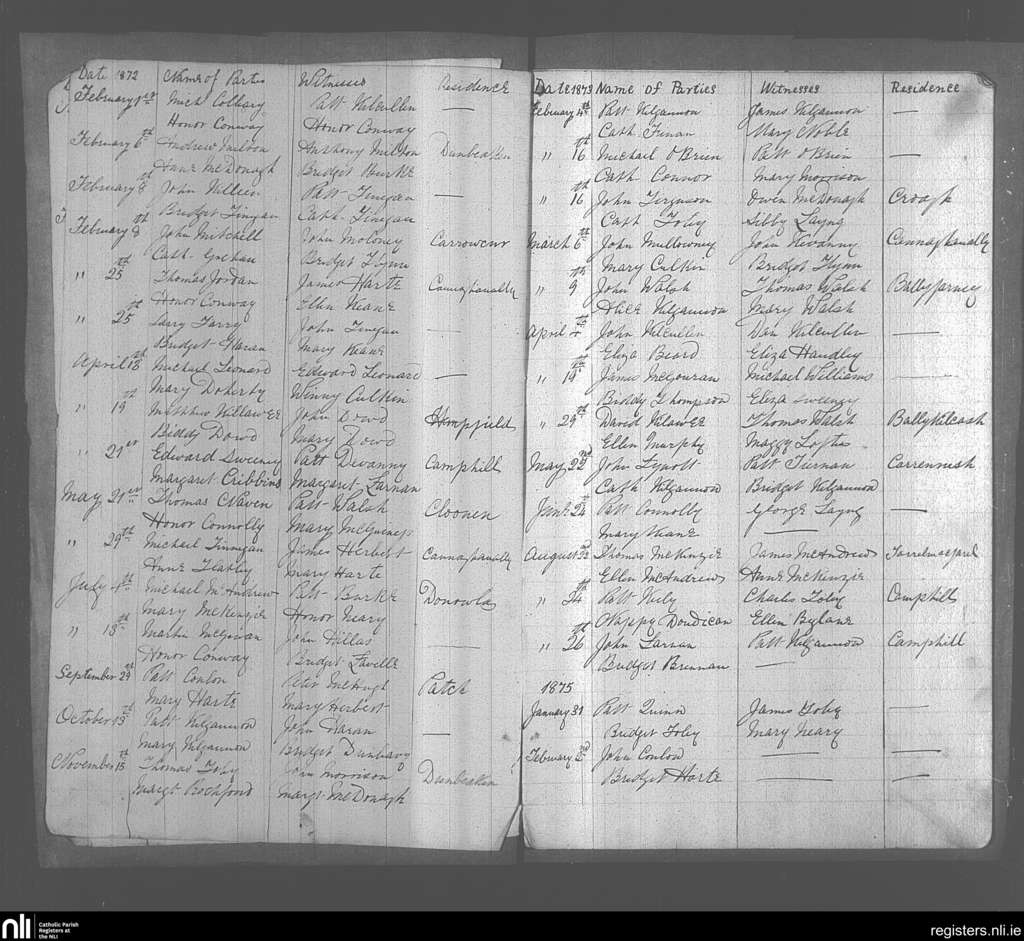 Date 1872 Name of Parties Witnesses Residence
February 1st Mich Colbary Patt Kilcullen —
Honor Conway Honor Conway
February 6th Andrew Anthony Milton Dunbeakin
Anne McDonagh Bridget Burke
February 8th John Killein Patt Finegan —
Bridget Finegan Cath. Finegan
February 8th John Mitchell John Moloney
Cath. Grehan Bridget Flynn
" 25th Thomas Jordan James Harte Cannaghanally
Honor Conway Ellen Keane
" 25th Larry Farry John Finegan —
Bridget Haran Mary Keane
April 13th Michael Leonard Edward Leonard —
Mary Doherty Winny Culkin
" 19th Matthew Killawee John Dowd Hempfield
Biddy Dowd Mary Dowd
" 21st Edward Sweeney Patt Devanny Camphill
Margaret Cribbins Margaret Farnan
May 21st Thomas CNaven Patt Walsh Cloonen
Honor Connolly Mary McGuiness
" 29th Michael Finnegan James Herbert Cannaghanally
Anne Feathy Mary Harte
July 4th Michael McAndrew Patt Burke Donowla
Mary McKenzie Honor Neary
" 13th Martin McGowan John Hillas —
Honor Conway Bridget Lavelle
September 29th Patt Conlon Peter McHugh Patch
Mary Harte Mary Herbert
October 13th Patt Kilgannon John Haran —
Mary Kilgannon Bridget Dunleavy
November 13th Thomas Foley John Morrison Dunbeakin
Margt Rochford Margt McDonagh
Date 1873 Name of Parties Witnesses Residence
February 4th Patt Kilgannon James Kilgannon —
Cath Finan Mary Noble
" 16th Michael O'Brien Patt O'Brien —
Cath Connor Mary Morrison
" 16th John Ferguson Owen McDonagh Croagh
Cath Foley Sibby Layng
March 6th John Mullowney John Kivanny Cannaghanally
Mary Culkin Bridget Flynn
" 9th John Walsh Thomas Walsh Ballyfarney
Alice Kilgannon Mary Walsh
April 4th John Kilcullen Dan Kilcullen —
Eliza Beard Eliza Handley
" 19th James McGouran Michael Williams —
Biddy Thompson Eliza Sweeney
" 29th David Kilawee Thomas Walsh Ballykilcash
Ellen Murphy Maggy Loftus
May 22nd John Lynott Patt Tiernan Carrennish
Cath Kilgannon Bridget Kilgannon
June 24 Patt Connolly George Layng —
Mary Keane —
August 22nd Thomas McKenzie James McAndrew
Ellen McAndrew Anne McKenzie
" 24th Patt Healy Charles Foley Camphill
Nappy Doudican Ellen Bylane
" 26th John Larnan Patt Kilgannon Camphill
Bridget Brennan —
1875
January 31 Patt Quinn James Foley —
Bridget Foley Mary Neary
February 2nd John Conlon — —
Bridget Harte — —
nli Catholic Parish
Registers at
the NLI
registers.nli.ie